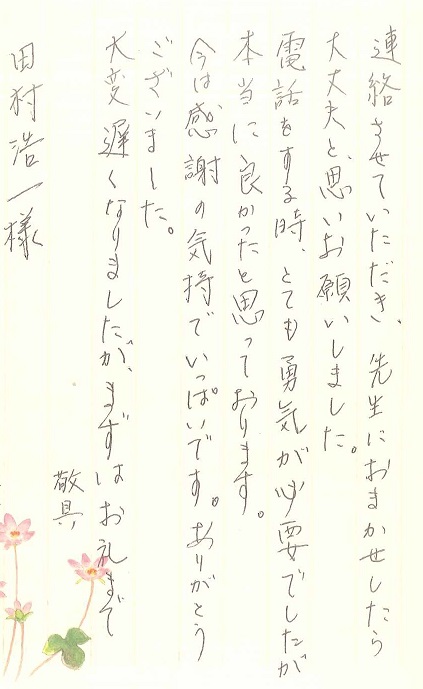 連絡させていただき、先生におまかせしたら
大丈夫と、思いお願いしました。
電話をする時、とても勇気が必要でしたが
本当に良かったと思っております。
今は感謝の気持でいっぱいです。ありがとう
ございました。
大変遅くなりましたが、まずはお礼まで
敬具
田村浩一様